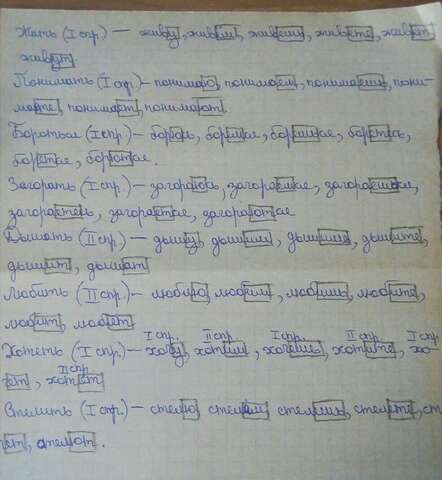 Жить (I спр.) — живу, живём, живёшь, живёте, живёт,
живут.
Понимать (I спр.) — понимаю, понимаем, понимаешь, пони-
маете, понимает, понимают.
Бороться (I спр.) — борюсь, боремся, борешься, боретесь,
борется, борются.
Загорать (I спр.) — загораюсь, загораемся, загораешься,
загораетесь, загорается, загораются
Дышать (II спр.) — дышу, дышим, дышишь, дышите,
дышит, дышат
Любить (II спр.) — люблю, любим, любишь, любите,
любит, любят
I спр. II спр. I спр. II спр. I спр
Хотеть (I спр.) — хочу, хотим, хочешь, хотите, хо-
II спр
чет, хотят
Стелить (I спр.) — стелю, стелем, стелешь, стелете, ст
ет, стелют.